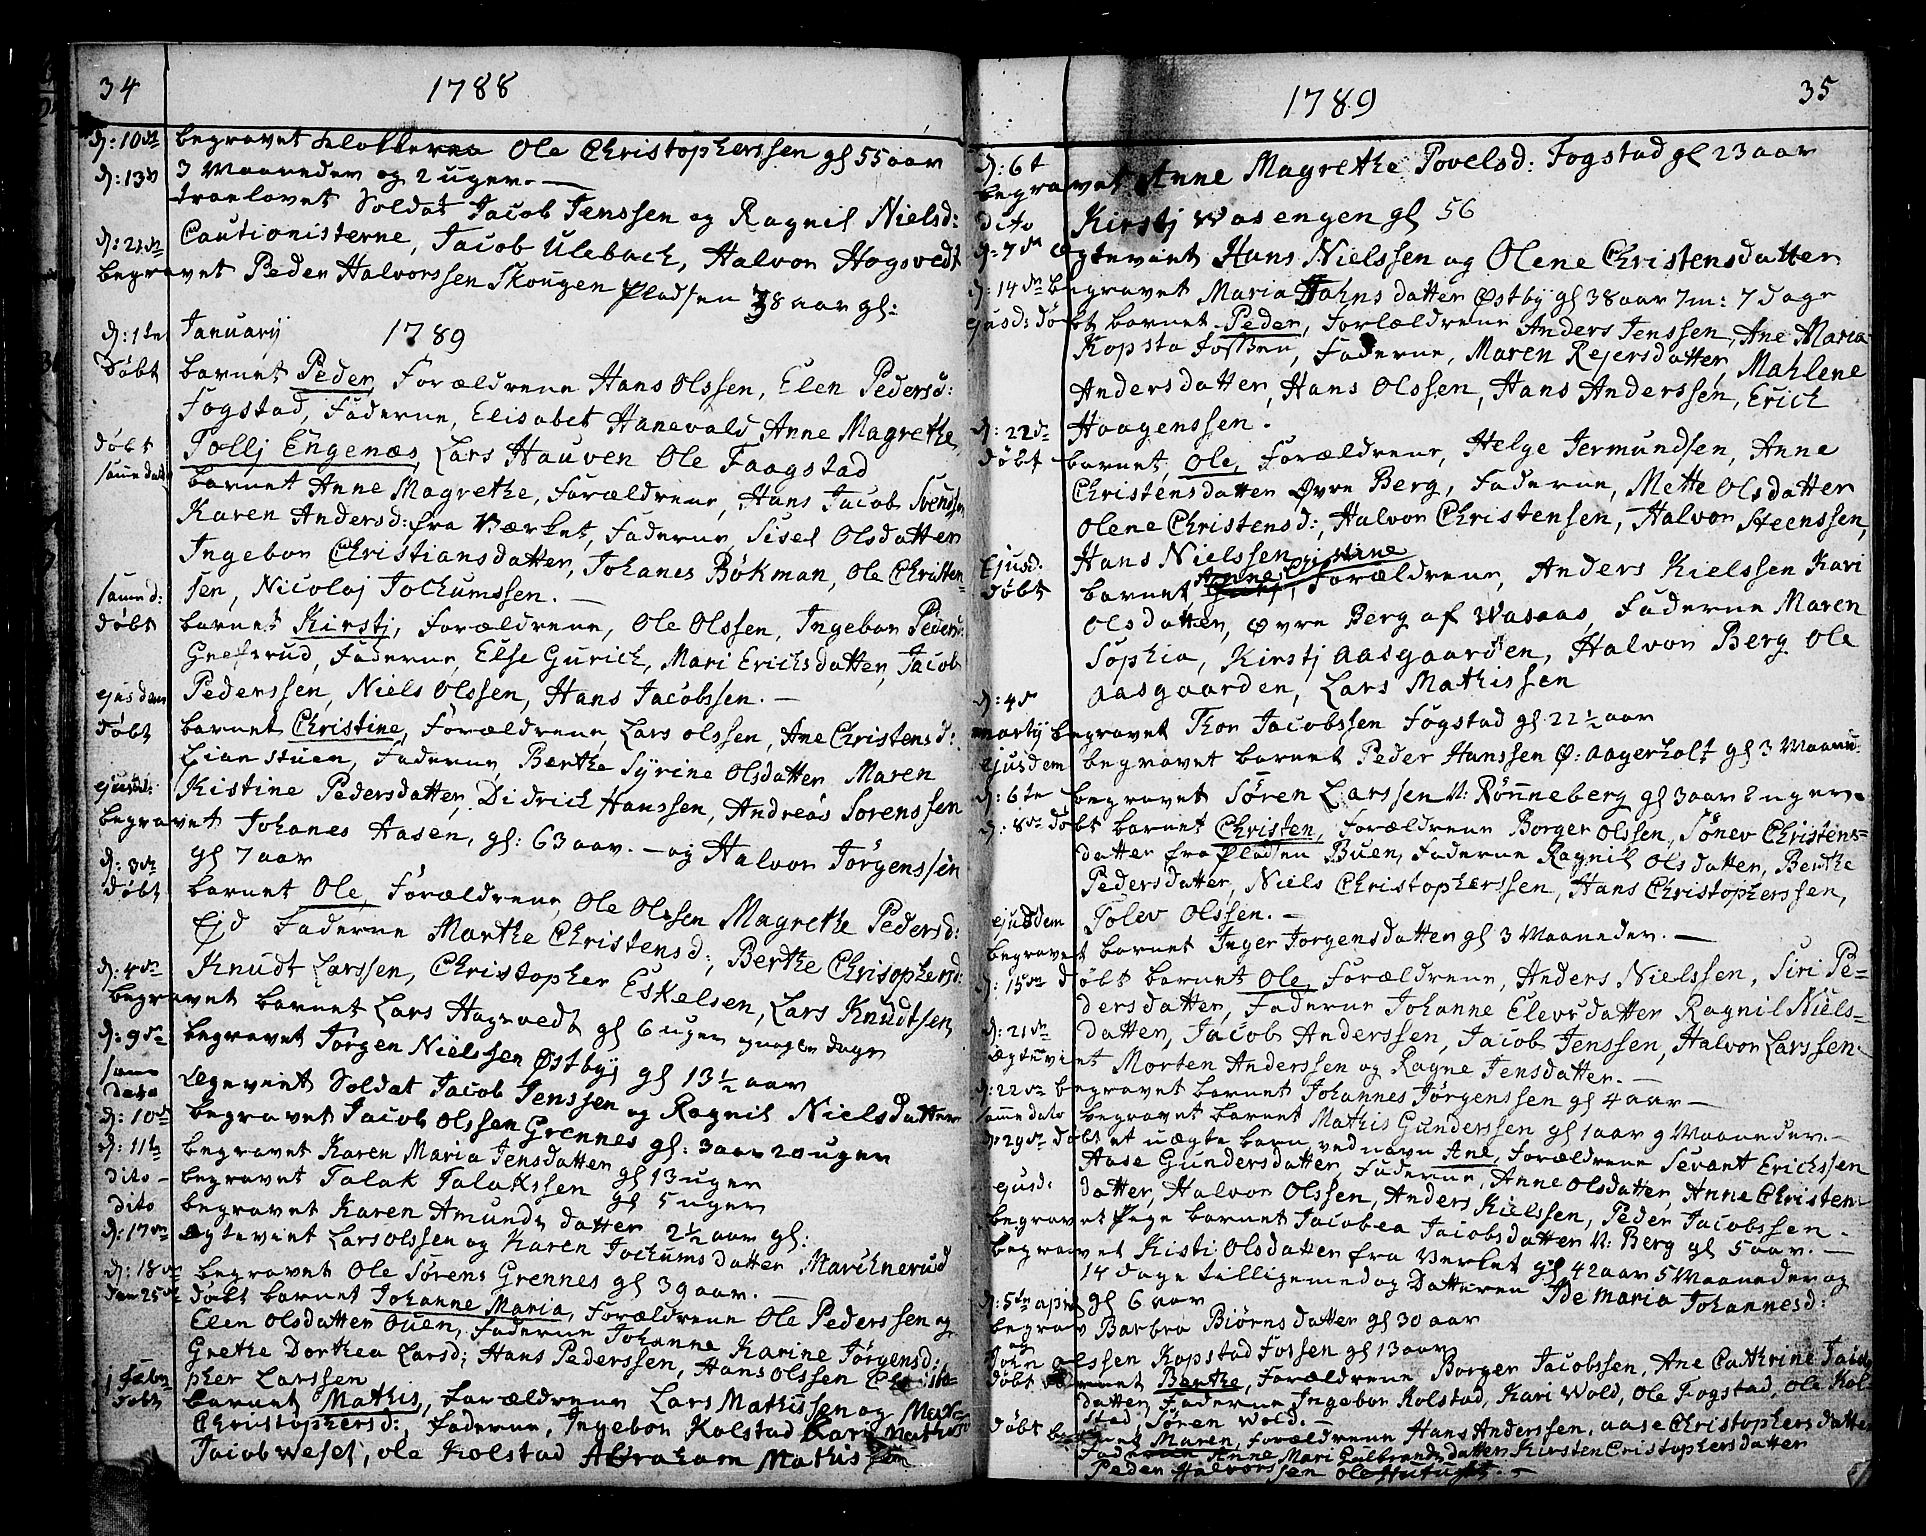 34
1788
d: 10de begravet Ole Christopherssen gl 55 aar
3 Maaneder og 2 uger. —
d: 13d troelovet Soldat Jacob Jenssen og Ragnil Nielsd:
Cautionisterne, Jacob Ulebach, Halvor Hogsvedt
d: 21de begravet Peder Halvorssen Skougen Pladsen 38 aar gl:
d: 1te January 1789
Døbt barnet Peder, Forældrene Hans Olssen, Elen Pedersd:
Fogstad, Faderne, Elisabet Hanevald, Anne Magrethe
Tollj Engenæs, Lars Hauven Ole Faagstad
døbt samme dato barnet Anne Magrethe, Forældrene, Hans Jacob Svendssen
Karen Andersd: fra Værket, Faderne, Sisel Olsdatter
Ingebor Christiansdatter, Johanes Bøkman, Ole Christen=
sen, Nicolaj Jochumssen. —
samme d: døbt barnet Kirstj, Forældrene, Ole Olssen, Ingebor Pedersd:
Grefsrud, Faderne, Else Gurich, Mari Erichsdatter, Jacob
Pederssen, Niels Olssen, Hans Jacobssen. —
ejusdem døbt barnet Christine, Forældrene, Lars Olssen, Ane Christensd:
Lianstuen, Faderne, Berthe Syrine Olsdatter Maren
Kistine Pedersdatter, Didrich Hanssen, Andreas Sorenssen
ejusd: begravet Johanes Aasen, gl: 63 aar. — og Halvor Jørgenssen
gl 7 aar
d: 3de døbt barnet Ole, Forældrene, Ole Olssen Magrethe Pedersd:
Ejd Faderne Marthe Christensd; Berthe Chrisophersd:
Knudt Larssen, Christopher Eskelsen, Lars Knudtsen
d: 4de begravet barnet Lars Hagsvedt gl 6 uger og nogle dage
d: 9de begravet Jørgen Nielssen Østbyj gl 13½ aar
samme dato Ægtevint Soldat Jacob Jenssen og Ragnil Nielsdatter
d: 10de begravet Jacob Olssen Grennes gl: 3 aar 20 uger
d: 11te begravet Karen Maria Jensdatter gl 13 uger
dito - begravet Talak Talakssen gl 5 uger
dito begravet Karen Amunds datter 2½ aar gl:
d: 17de Ægtevint Lars Olssen og Karen Jochums datter Marchnerud
d: 18de begravet Ole Sørens Grennes gl 39 aar. —
den 25de døbt barnet Johanne Maria, Forældrene Ole Pederssen og
Elen Olsdatter Ouen, Faderne Johanne Karine Jørgensd:
Grethe Dorthea Larsd; Hans Pederssen, Hans Olssen Christo=
pher Larssen
1 Febr døbt barnet Mathis, Forældrene Lars Mathissen og
Christophersd:, Faderne, Ingebor Kolstad
Jacob Wesel, ole Kolstad Abraham Mathissen
1789
35
d: 6t begravet Anne Magrethe Povelsd: Fogstad gl 23 aar
dito Kirstj Wasengen gl 56
d: 7de Ægtevint Hans Nielssen og Olene Christensdatter
d: 14de begravet Maria Johnsdatter Østby gl 38 aar 7m: 7 dage
ejusd: døbt barnet Peder, Forældrene Anders Jenssen, Ane Maria
Kopsta Fossen, Faderne, Maren Rejersdatter, Mahlene
Andersdatter, Hans Olssen, Hans Anderssen, Erich
Haagenssen.
d: 22de døbt barnet, Ole, Forældrene, Helge Jermundsen, Anne
Christensdatter Øvre Berg, Faderne, Mette Olsdatter
Olene Christensd:, Halvor Christensen, Halvor Steenssen,
Hans Nielssen
Ejusd. døbt barnet, Anne Cristine, Forældrene, Anders Kielssen Kari
Olsdatter, Øvre Berg af Wasaas, Faderne Maren
Sophia, Kirstj Aasgaarden, Halvor Berg Ole
Aasgaarden, Lars Mathissen
d: 4de marty begravet Thor Jacobssen Fogstad gl. 22½ aar
ejusdem begravet barnet Peder Hanssen Ø: Aagerholt gl 3 Maaned:
d: 6te begravet Søren Larssen N: Rønneberg gl 3 aar 2 uger.
d: 8de døbt barnet Christen, Forældrene Borger Olssen, Sønev Christens=
datter fra Pladsen Buen, Faderne Ragnil Olsdatter, Berthe
Pedersdatter, Niels Christopherssen, Hans Christopherssen,
Tolev Olssen. —
ejusdem begravet barnet Inger Jorgensdatter gl 3 Maaneder. —
d: 15de døbt barnet Ole, Forældrene, Anders Nielssen, Siri Pe=
dersdatter, Faderne Johanne Elevsdatter Ragnil Niels=
datter, Jacob Anderssen, Jacob Jenssen, Halvor Larssen.
d: 21de ægtevint Morten Anderssen og Ragne Jensdatter. —
d: 22de begravet barnet Johannes Jørgenssen gl 4 aar —
samme dato begravet barnet Mathis Gunderssen gl 1 aar 9 Maaneder. —
d: 29de døbt et uægte barn ved navn Ane, Forældrene Sevant Erichssen
Aase Gundersdatter, Faderne, Anne Olsdatter, Anne Christens
datter, Halvor Olssen, Anders Kielssen, Peder Jacobssen.
ejusd: begravet Pige barnet Jacobea Jacobsdatter N: Berg gl 5 aar. —
begravet Kisti Olsdatter fra Verket gl 42 aar 5 Maaneder og
14 dage tilligemed og Datteren Ide Maria Johannesd:
gl 6 aar
d: 5te april begrav Barbro Biørnsdatter gl 30 aar
og John olssen Kopstad Fossen gl 13 aar
døbt barnet Berthe, Forældrene Borger Jacobssen, Ane Cathrine Jacobs
datter, Faderne Ingebor Kolstad, Kari Wold, Ole Fogstad, Ole Kol=
stad, Søren Wold. —
døbt barnet Maren, Forældrene Hans Anderssen, Aase Christophersdatter
Faderne Anne Mari Gulbrandsdatter Kirsten Cristophersdatter
Peder Halvorssen Ole